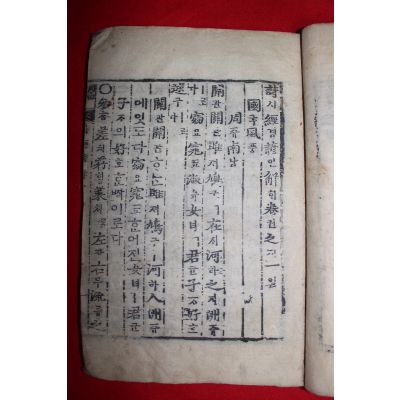 詩시經경諺언解ᄒᆡ卷권之지一일
國국風풍
周쥬南남
關관關관雎져鳩구ㅣ在ᄌᆡ河하之지洲쥬
로다窈요窕됴淑슉女녀ㅣ君군子ᄌᆞ好호
逑구ㅣ로다
關관關관ᄒᆞᆫ雎져鳩구ㅣ河하ㅅ洲쥬
에잇도다窈요窕됴ᄒᆞᆫ어진女녀ㅣ君군
子ᄌᆞ의好호ᄒᆞᆫᄧᅡᆨ이로다
○參ᄎᆞᆷ差치荇ᄒᆡᆼ菜ᄎᆡ左좌右우流류之지